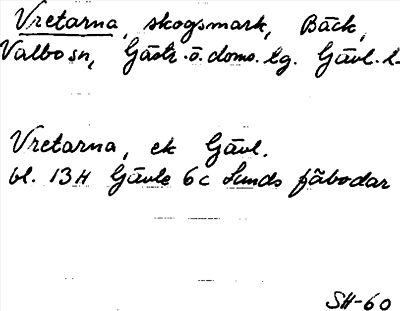 Vretarna, skogsmark, Bäck,
Valbo sn, Gästr. ö. doms. tg. Gävl. l.
Vretarna, ek Gävl.
bl. 13H Gävle 6c Lunds fäbodar
SH-60